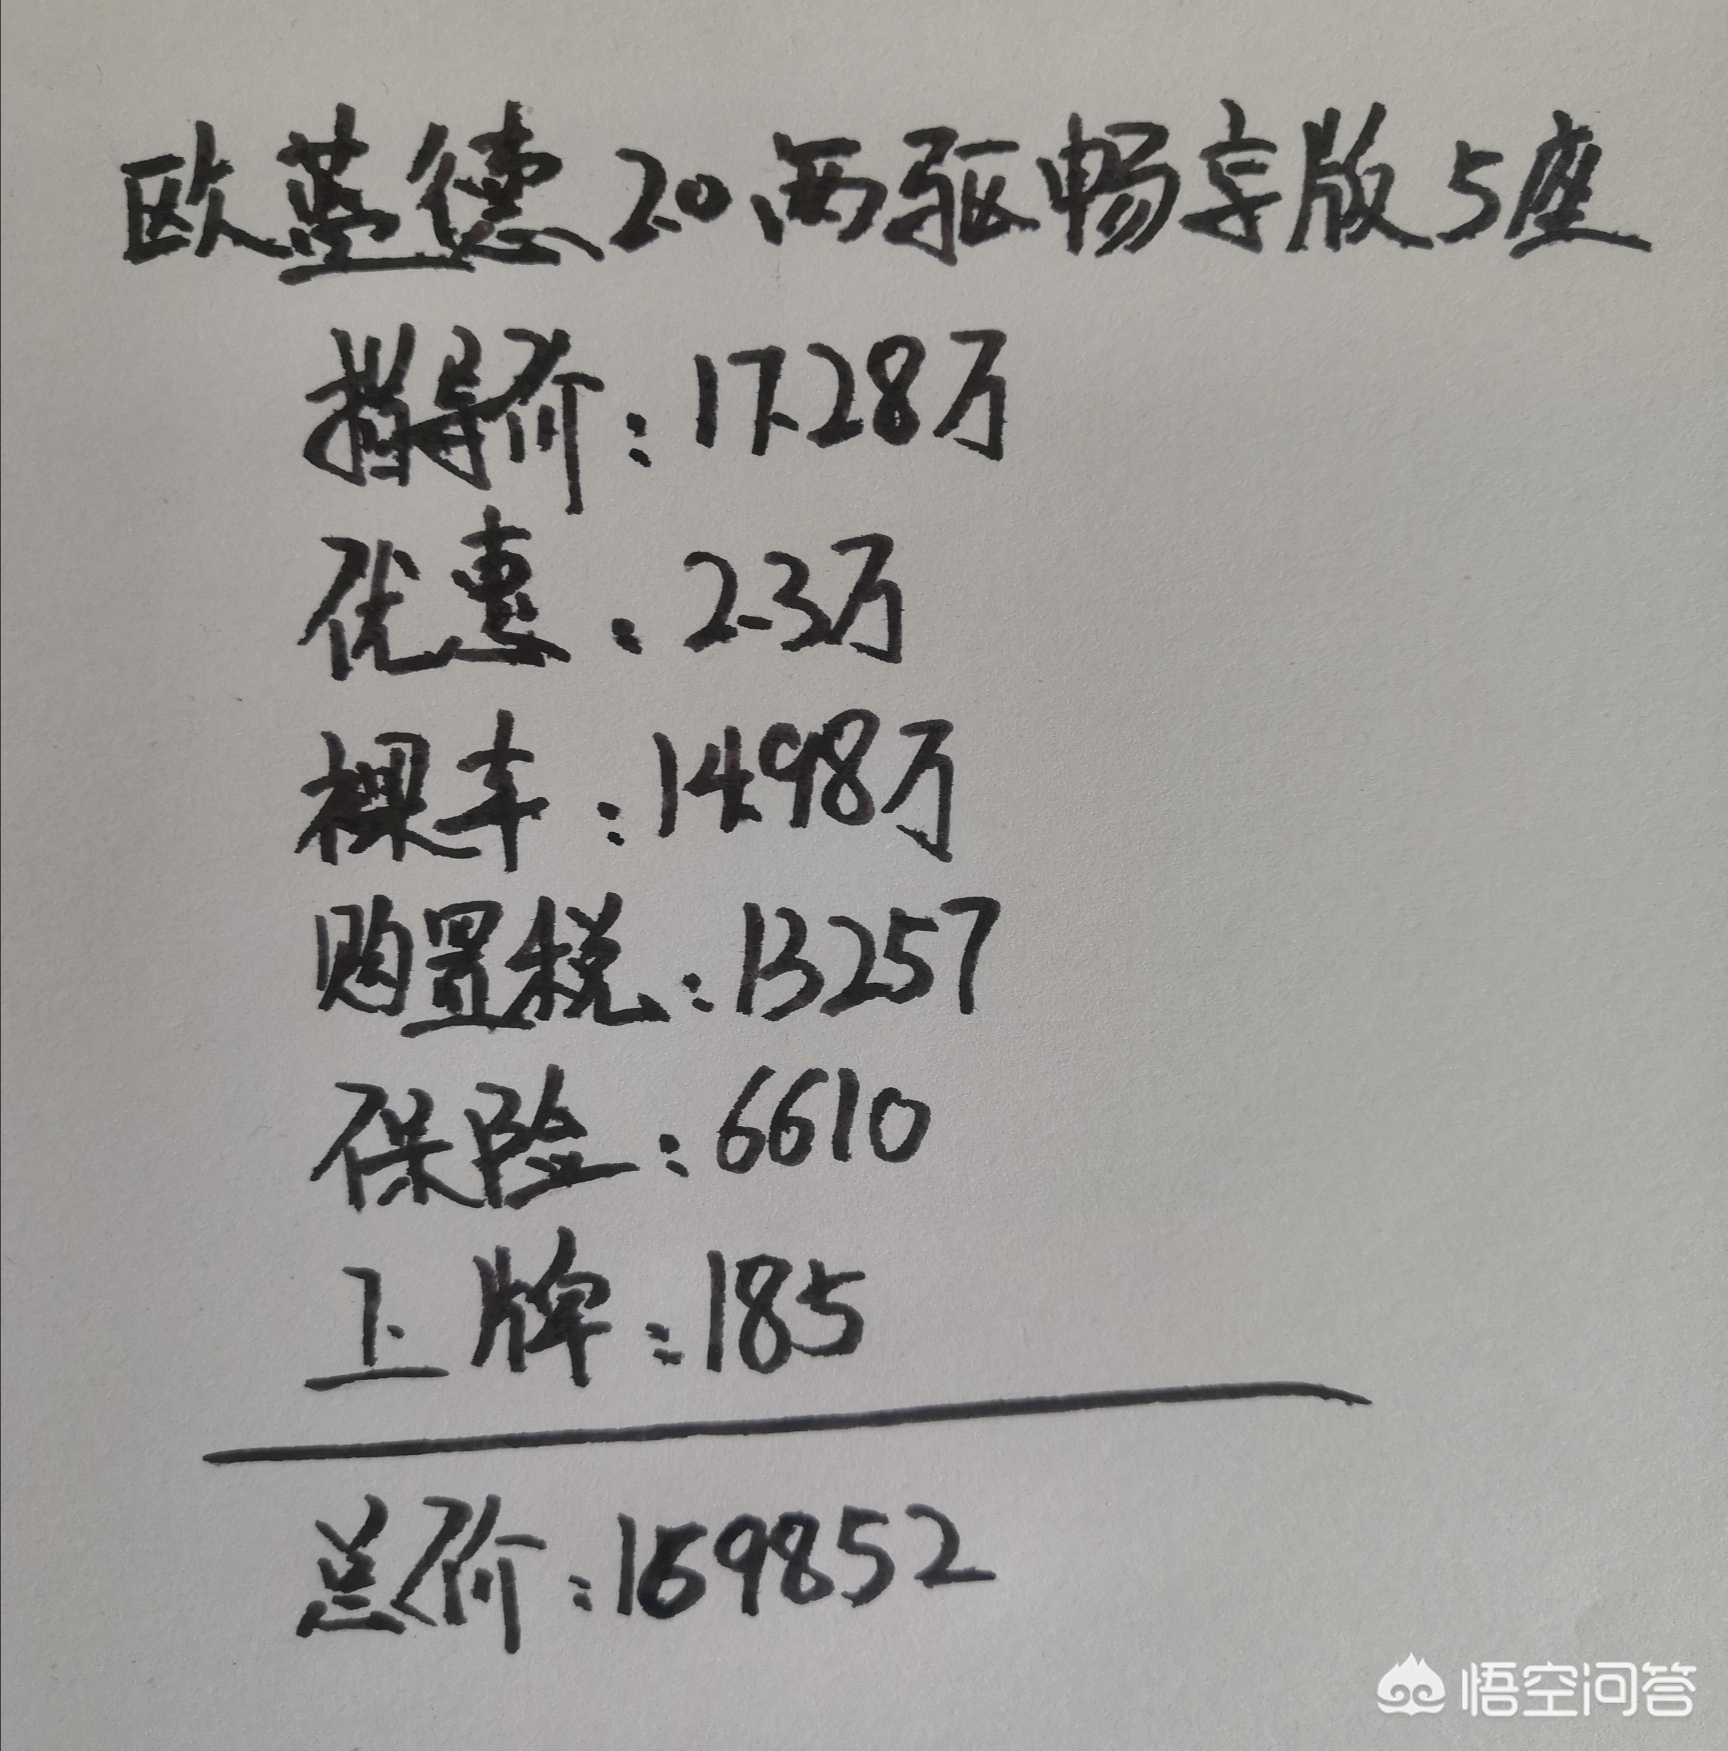 欧蓝德2.0两驱畅享版5座
指导价:17.28万
优惠:2.3万
裸车:14.98万
购置税:13257
保险:6610
上牌:185
总价:169852
悟空问答